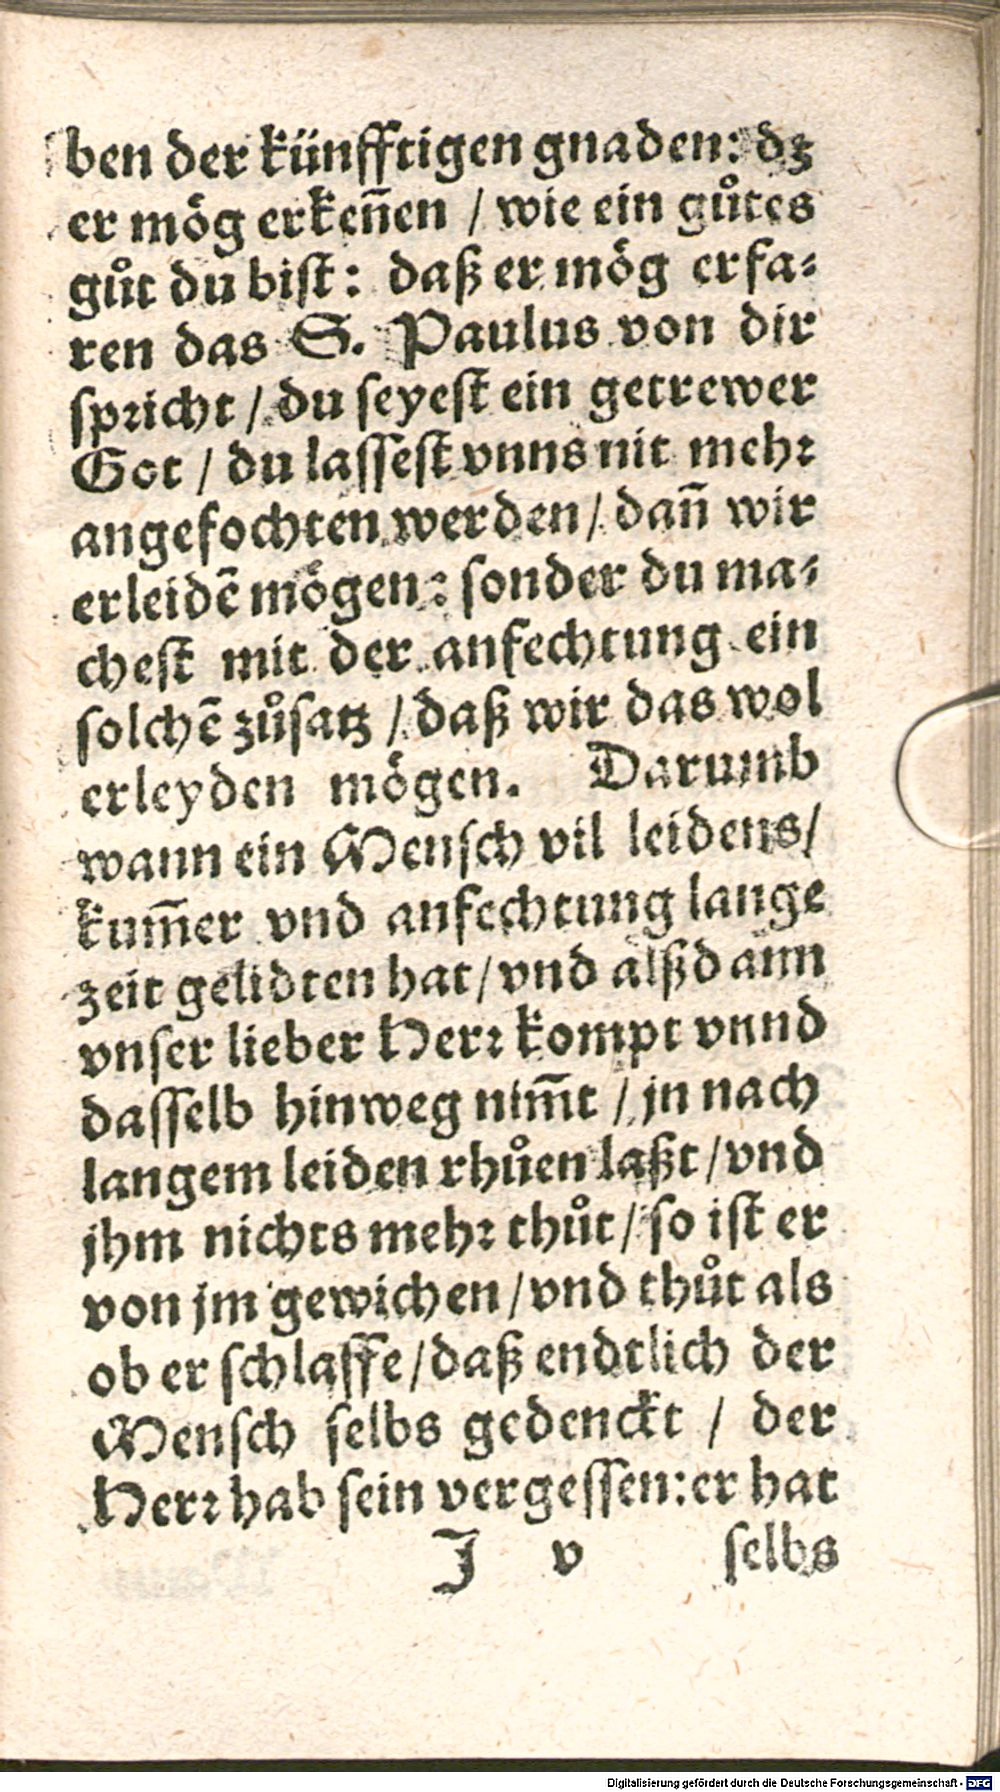 ben der künfftigen gnaden: dz
er mög erkeñen / wie ein gůtes
gůt du bist: daß er mög erfa-
ren das S. Paulus von dir
spricht / du seyest ein getrewer
Got / du lassest vnns nit mehr
angefochten werden / dañ wir
erleidē mögen: sonder du ma-
chest mit der anfechtung ein
solchē zůsatz / daß wir das wol
erleyden mögen. Darumb
wann ein Mensch vil leidens /
kum̄er vnd anfechtung lange
zeit gelidten hat / vnd alßdann
vnser lieber Herr kompt vnnd
dasselb hinweg nim̄t / jn nach
langem leiden rhůen laßt / vnd
jhm nichts mehr thůt / so ist er
von jm gewichen / vnd thůt als
ob er schlaffe / daß endtlich der
Mensch selbs gedenckt / der
Herr hab sein vergessen: er hat
J v selbs
Digitalisierung gefördert durch die Deutsche Forschungsgemeinschaft - DFG